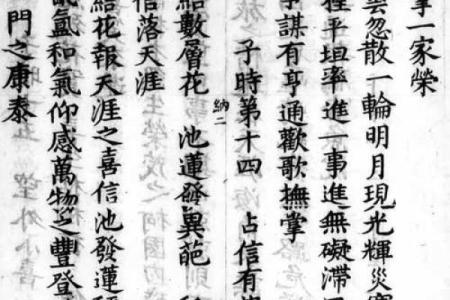 一家榮
雲忽散一輪明月現光輝災
程平坦率進一事進無礙滯
事謀有亨通歡歌撫掌
子時第十四 納二 占信有
結數層花 池蓮發異葩
信落天涯
結花報天涯之喜信池發蓮
氳和氣仰感萬物之豐登
門之康泰